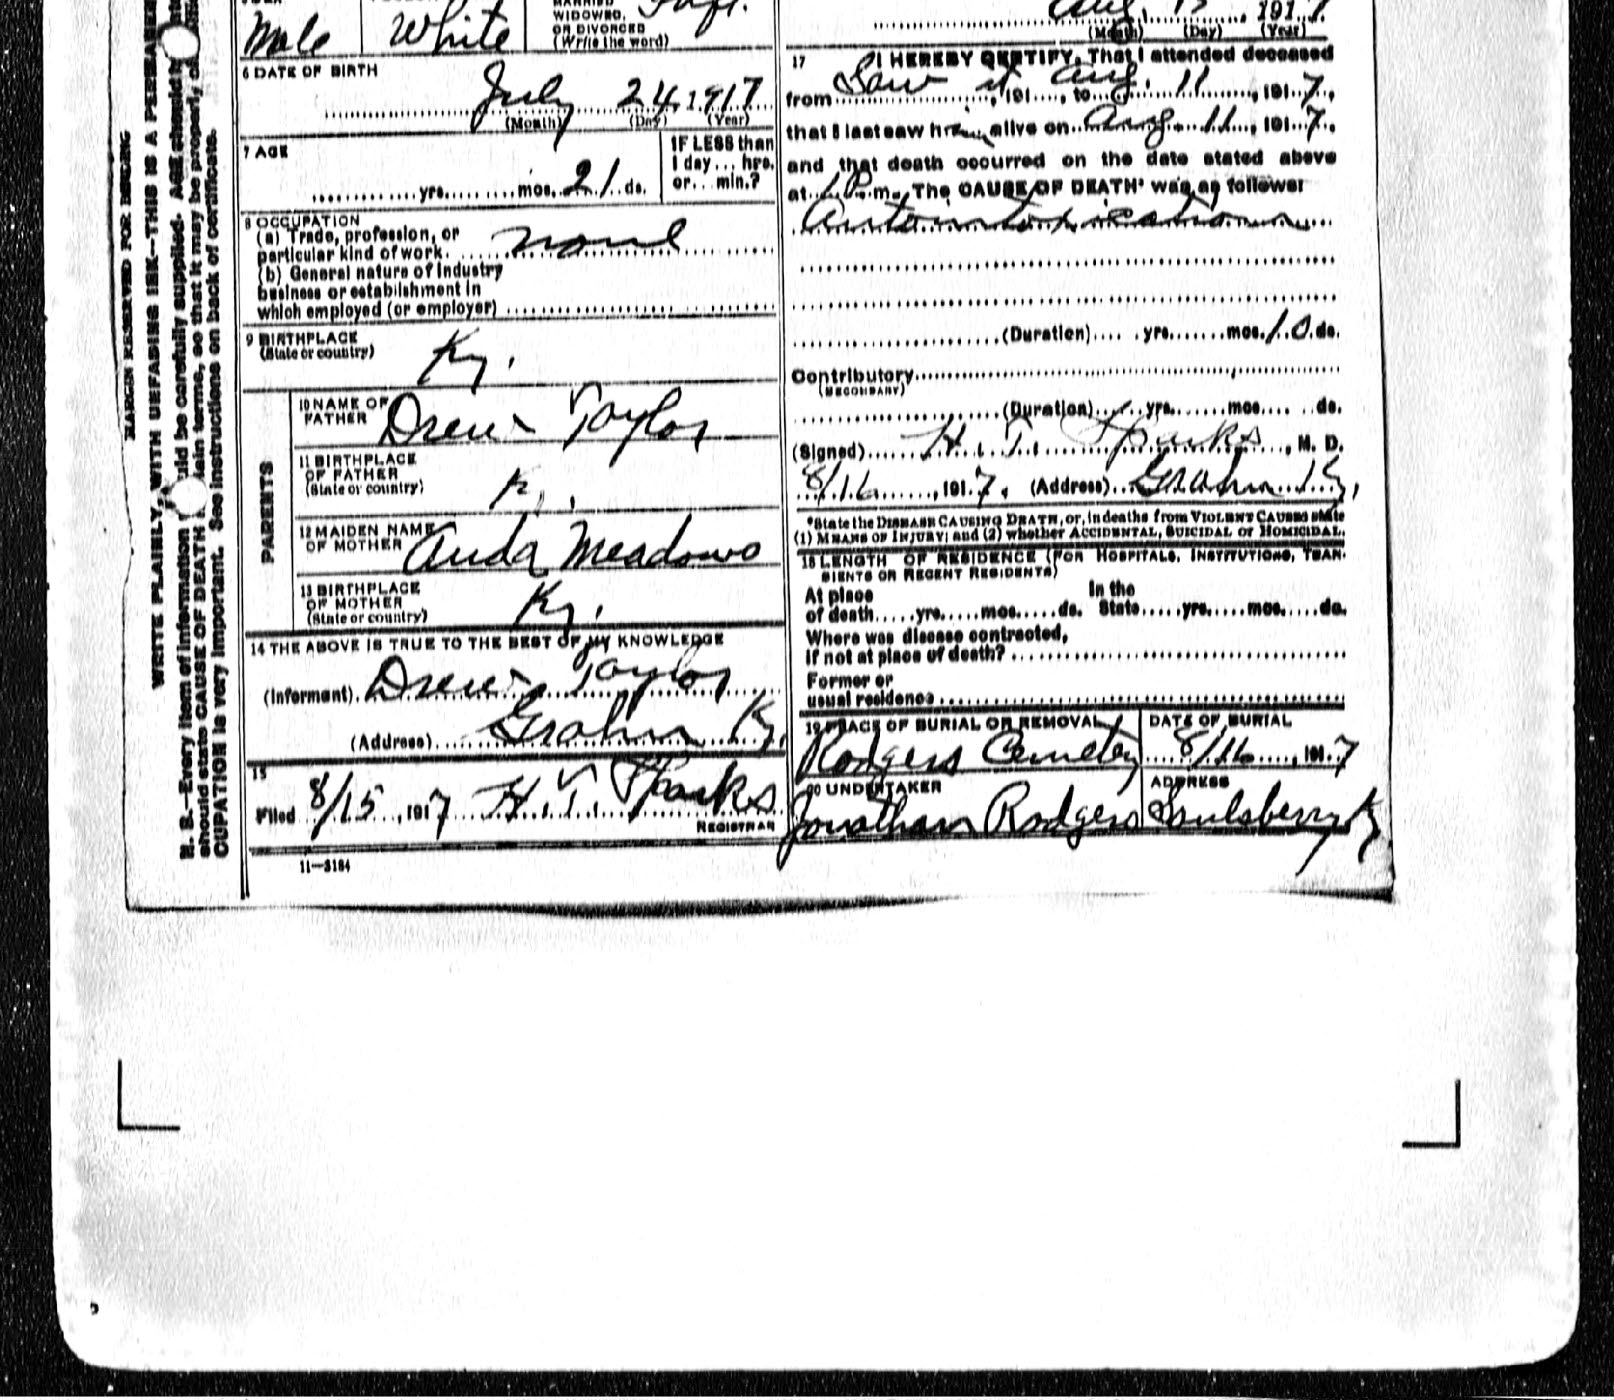 MARGIN RESERVED FOR BINDING
WRITE PLAINLY, WITH UNFADING INK—THIS IS A PERMANE
N. B.—Every item of information uld be carefully supplied. AGE should
should state CAUSE OF DEATH lain terms, so that it may be properly
CUPATION is very important. See instructions on back of certificate.
Male
White
MARRIED
WIDOWED,
OR DIVORCED
(Write the word)
6 DATE OF BIRTH
July 24, 1917
(Month) (Day) (Year)
7 AGE
yrs. mos. 21 ds.
IF LESS than
1 day ... hrs.
or ... min.?
8 OCCUPATION
(a) Trade, profession, or
particular kind of work none
(b) General nature of industry
business or establishment in
which employed (or employer)
9 BIRTHPLACE
(State or country) Ky.
PARENTS
10 NAME OF
FATHER Drew Taylor
11 BIRTHPLACE
OF FATHER
(State or country) Ky.
12 MAIDEN NAME
OF MOTHER Auda Meadows
13 BIRTHPLACE
OF MOTHER
(State or country) Ky.
14 THE ABOVE IS TRUE TO THE BEST OF MY KNOWLEDGE
(Informant) Drew Taylor
(Address) Graham Ky.
15
Filed 8/15, 1917 H. T. Sparks
REGISTRAR
11—3184
Aug. 1917
(Month) (Day) (Year)
17 I HEREBY CERTIFY, That I attended deceased
from Saw it, 191, to Aug. 11, 1917,
that I last saw him alive on Aug. 11, 1917,
and that death occurred on the date stated above
at 1 P. m. The CAUSE OF DEATH* was as follows
Autointoxication
(Duration) yrs. mos. 10 ds.
Contributory
(SECONDARY)
(Duration) yrs. mos. ds.
(Signed) H. T. Sparks, M. D.
8/16, 1917. (Address) Graham Ky,
*State the DISEASE CAUSING DEATH, or, in deaths from VIOLENT CAUSES state
(1) MEANS OF INJURY; and (2) whether ACCIDENTAL, SUICIDAL or HOMICIDAL.
18 LENGTH OF RESIDENCE (FOR HOSPITALS, INSTITUTIONS, TRAN-
SIENTS OR RECENT RESIDENTS)
At place In the
of death yrs. mos. ds. State yrs. mos. ds.
Where was disease contracted,
if not at place of death?
Former or
usual residence
19 PLACE OF BURIAL OR REMOVAL
Rodgers Cemetery
DATE OF BURIAL
8/16, 1917
20 UNDERTAKER
Jonathan Rodgers
ADDRESS
Saulsberry Ky